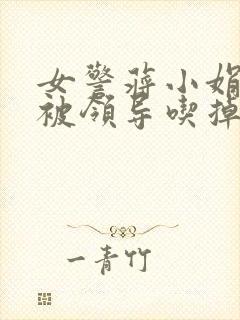 女警蒋小娟
被领导喫掉
一青竹